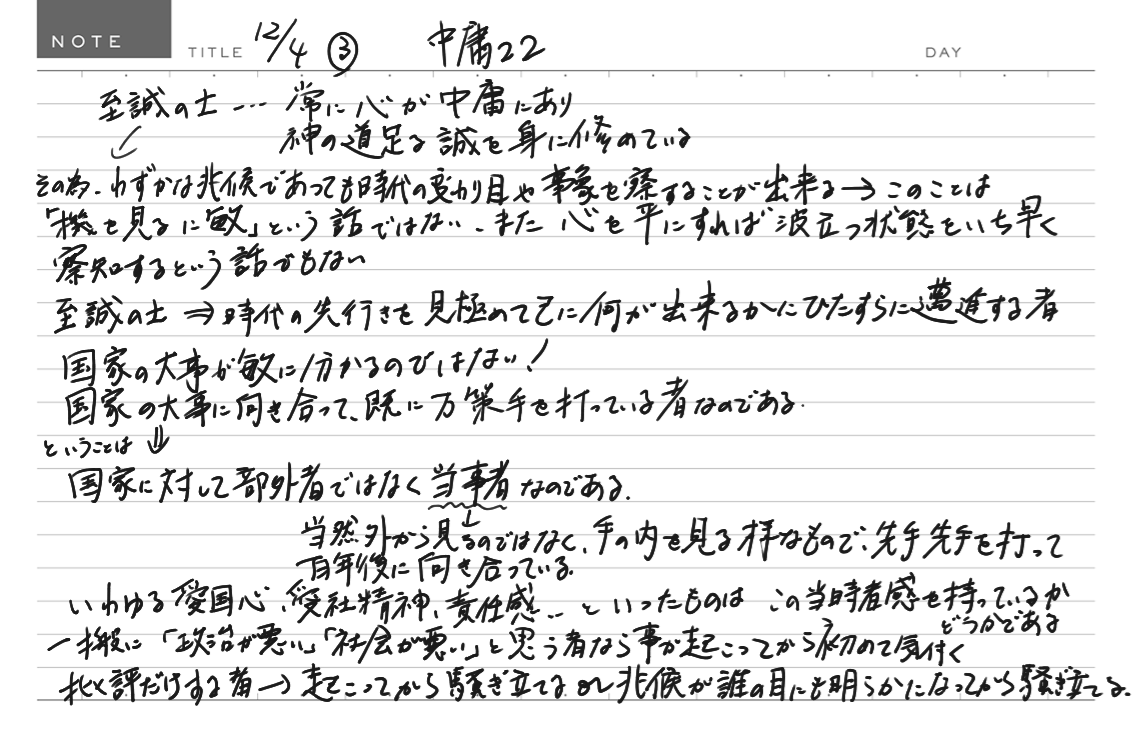 NOTE TITLE 12/4 ③ 中庸22 DAY
至誠の士 … 常に心が中庸にあり
神の道足る誠を身に修めている
その為、わずかな兆候であっても時代の変わり目や事象を察することが出来る→このことは
「機を見るに敏」という話ではない、また心を平にすれば波立つ状態をいち早く
察知するという話でもない
至誠の士 ⇒ 時代の先行きを見極めて己に何が出来るかにひたすらに邁進する者
国家の大事が敏に分かるのではない!
国家の大事に向き合って、既に万策手を打っている者なのである.
ということは ⇓
国家に対して部外者ではなく当事者なのである.
↓
当然外から見るのではなく、手の内を見る様なもので、先手先手を打って
百年後に向き合っている.
いわゆる愛国心、愛社精神、責任感… といったものは この当時者感を持っているか
どうかである
一般に「政治が悪い」「社会が悪い」と思う者なら事が起こってから初めて気付く
批評だけする者→起こってから騒ぎ立てる or 兆候が誰の目にも明らかになってから騒ぎ立てる.